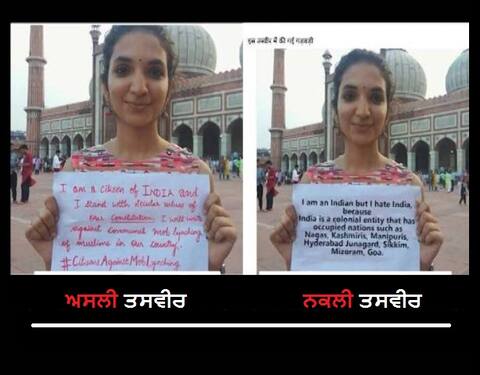 I am a citizen of INDIA and
I stand with secular values of
our Constitution. I will write
against communal mob lynching
of muslims in our country.
#CitizensAgainstMobLynching
इस तस्वीर में की गई गड़बड़ी
I am an Indian but I hate India,
because
India is a colonial entity that has
occupied nations such as
Nagas, Kashmiris, Manipuris,
Hyderabad Junagard, Sikkim,
Mizoram, Goa.
ਅਸਲੀ ਤਸਵੀਰ
ਨਕਲੀ ਤਸਵੀਰ